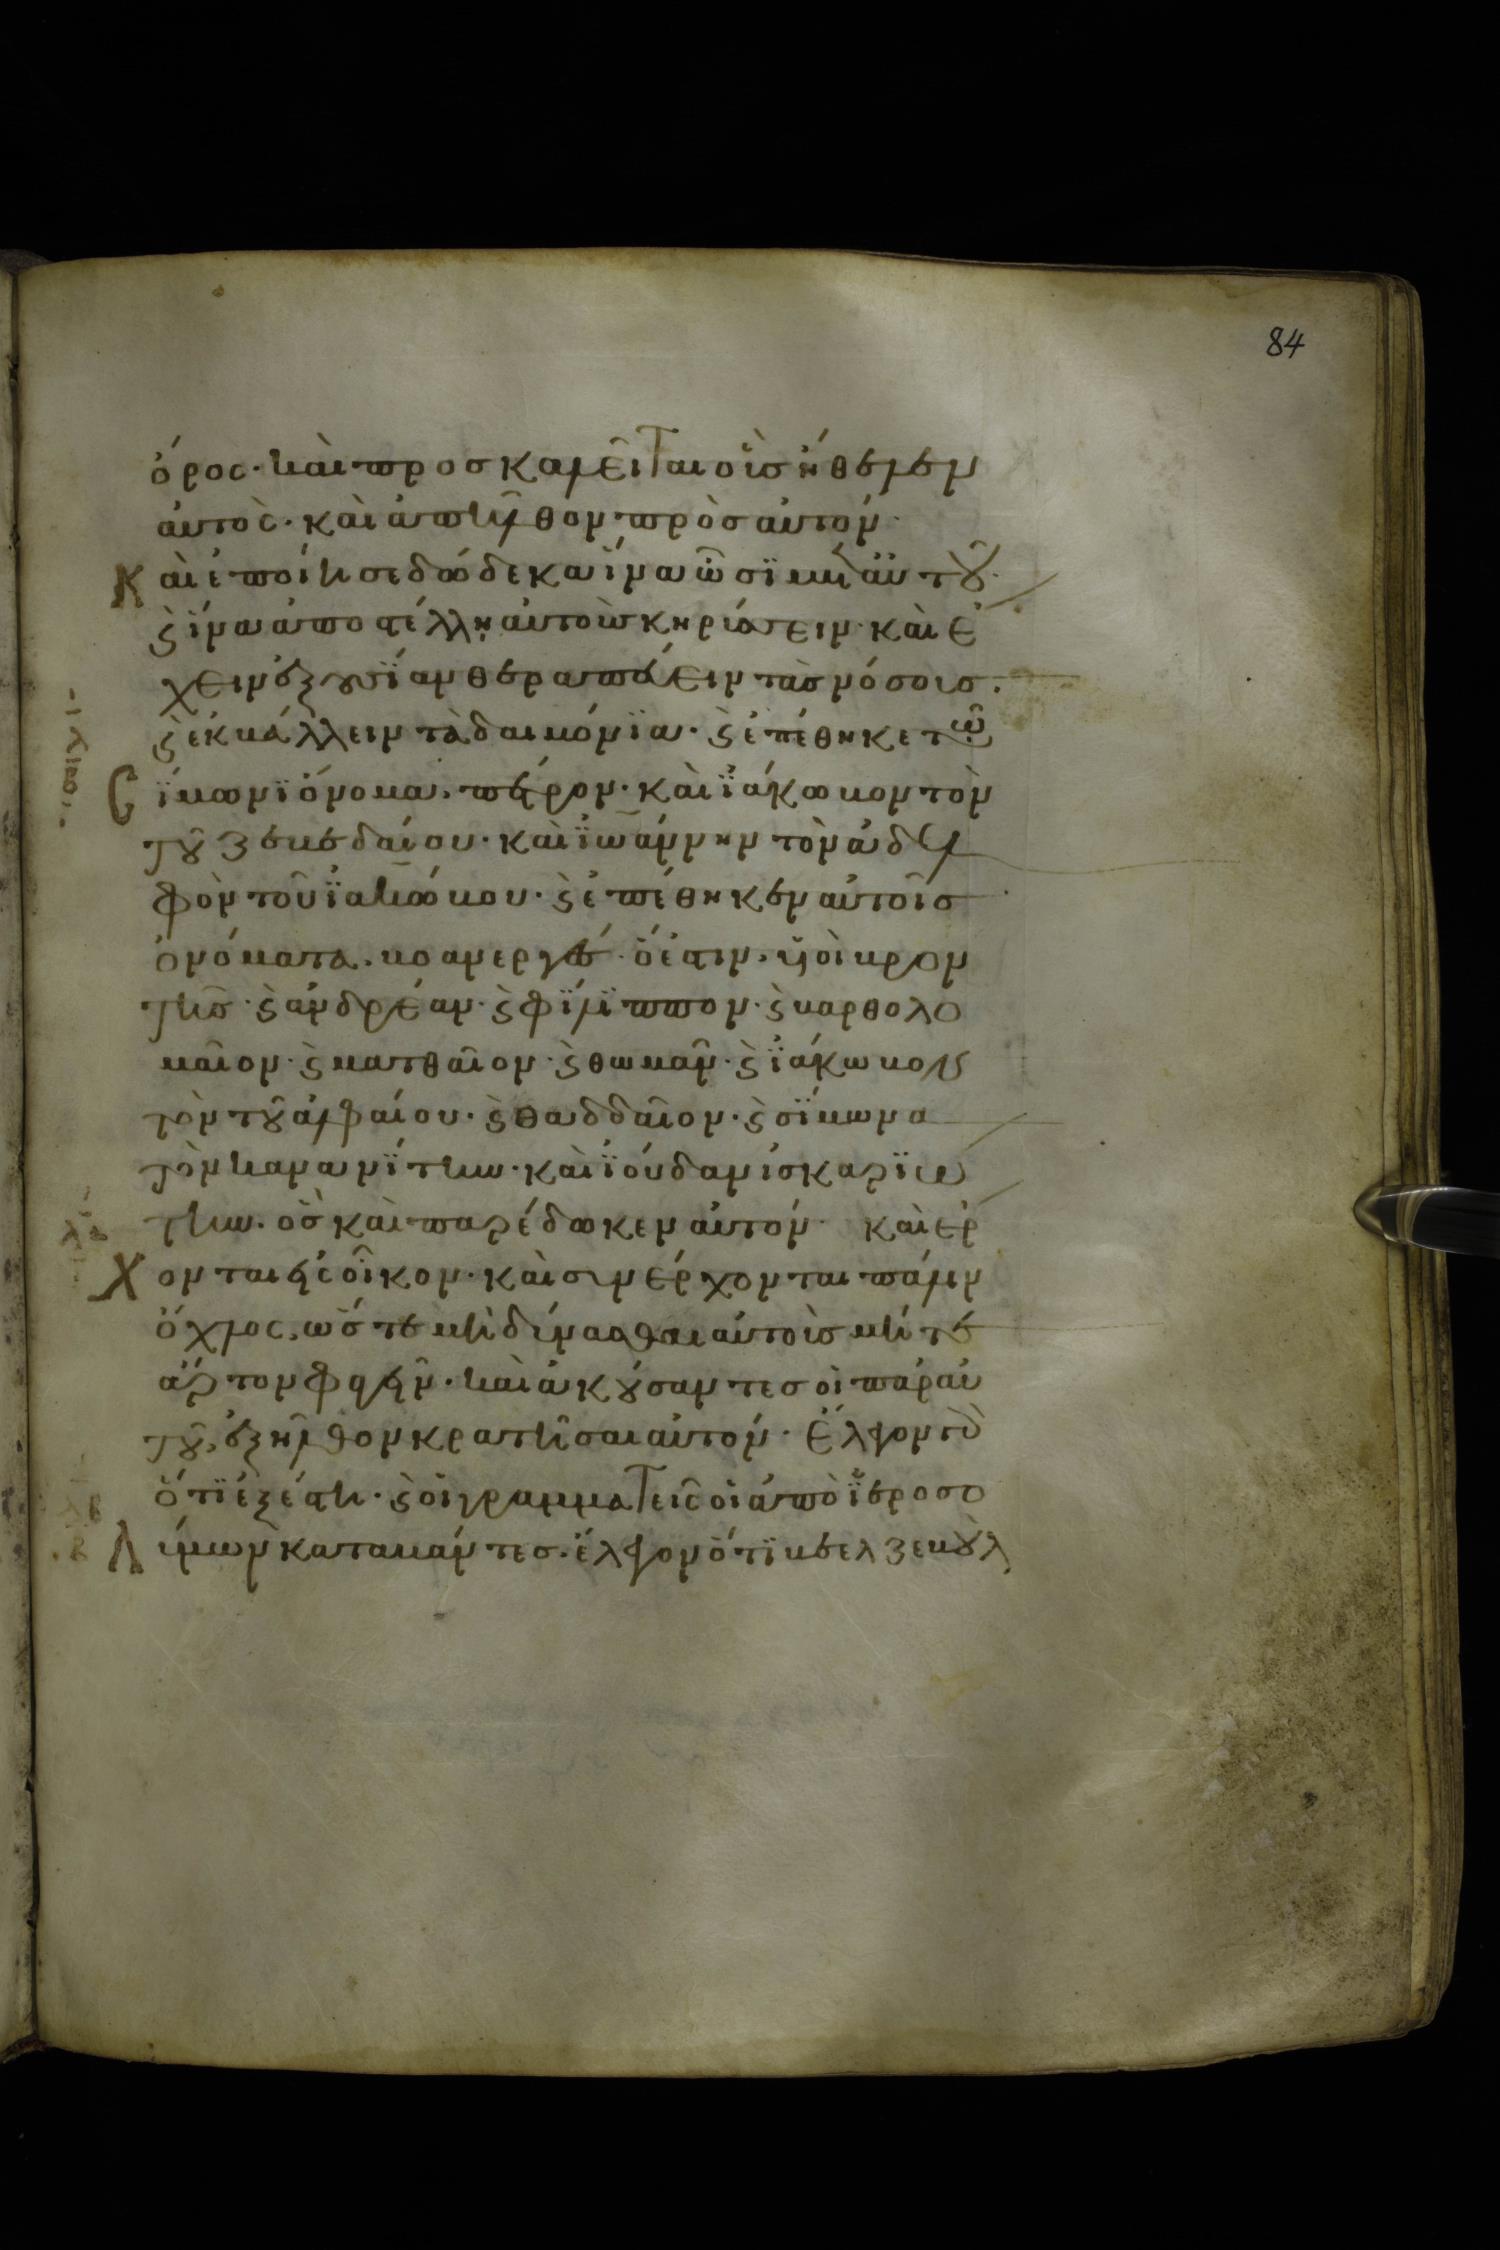 84
ὄρος· καὶ προσκαλεῖται οὓς ἤθελεν
αὐτὸς· καὶ ἀπῆλθον πρὸς αὐτόν·
Καὶ ἐποίησε δώδεκα ἵνα ὦσϊ μετ αὐτοῦ·
ϛ ἵνα ἀποστέλλη αὐτοὺς κηρύσσειν· καὶ ἔ
χειν ἐξουσίαν θεραπεύειν τὰς νόσους·
ϛ ἐκβάλλειν τὰ δαιμόνϊα· ϛ ἐπέθηκε τῶ
Σίμωνϊ ὄνομα· πέτρον· καὶ ϊάκωβον τὸν
τοῦ ζεβεδαίου· καὶ ϊωάννην τὸν ἀδελ
φὸν τοῦ ϊακώβου· ϛ ἐπέθηκεν αὐτοῖς
ὀνόματα· βοανεργές· ὅ ἐστιν· υἱοὶ βρον
τῆς· ϛ ἀνδρέαν· ϛ φϊλϊππον· ϛ βαρθολο
μαῖον· ϛ ματθαῖον· ϛ θωμᾶν· ϛ ϊάκωβον
τὸν τοῦ ἀλφαίου· ϛ θαδδαῖον· ϛ σϊμωνα
τὸν κανανϊτην· καὶ ϊούδαν ἰσκαρϊώ
την· ὃς καὶ παρέδωκεν αὐτόν· καὶ ἔρ
Χονται εἰς οἶκον· καὶ συνέρχονται πάλιν
ὄχλος· ὥστε μὴ δύνασθαι αὐτοὺς μήτε
ἄρτον φαγεῖν· καὶ ἀκούσαντες οἱ παρ αὐ
τοῦ, ἐξῆλθον κρατῆσαι αὐτόν· ἔλεγον
ὅτϊ ἐξέστη· ϛ οἱ γραμματεῖς οἱ ἀπὸ ϊεροσο
Λύμων καταβάντες· ἔλεγον ὅτϊ βεελζεβοὺλ